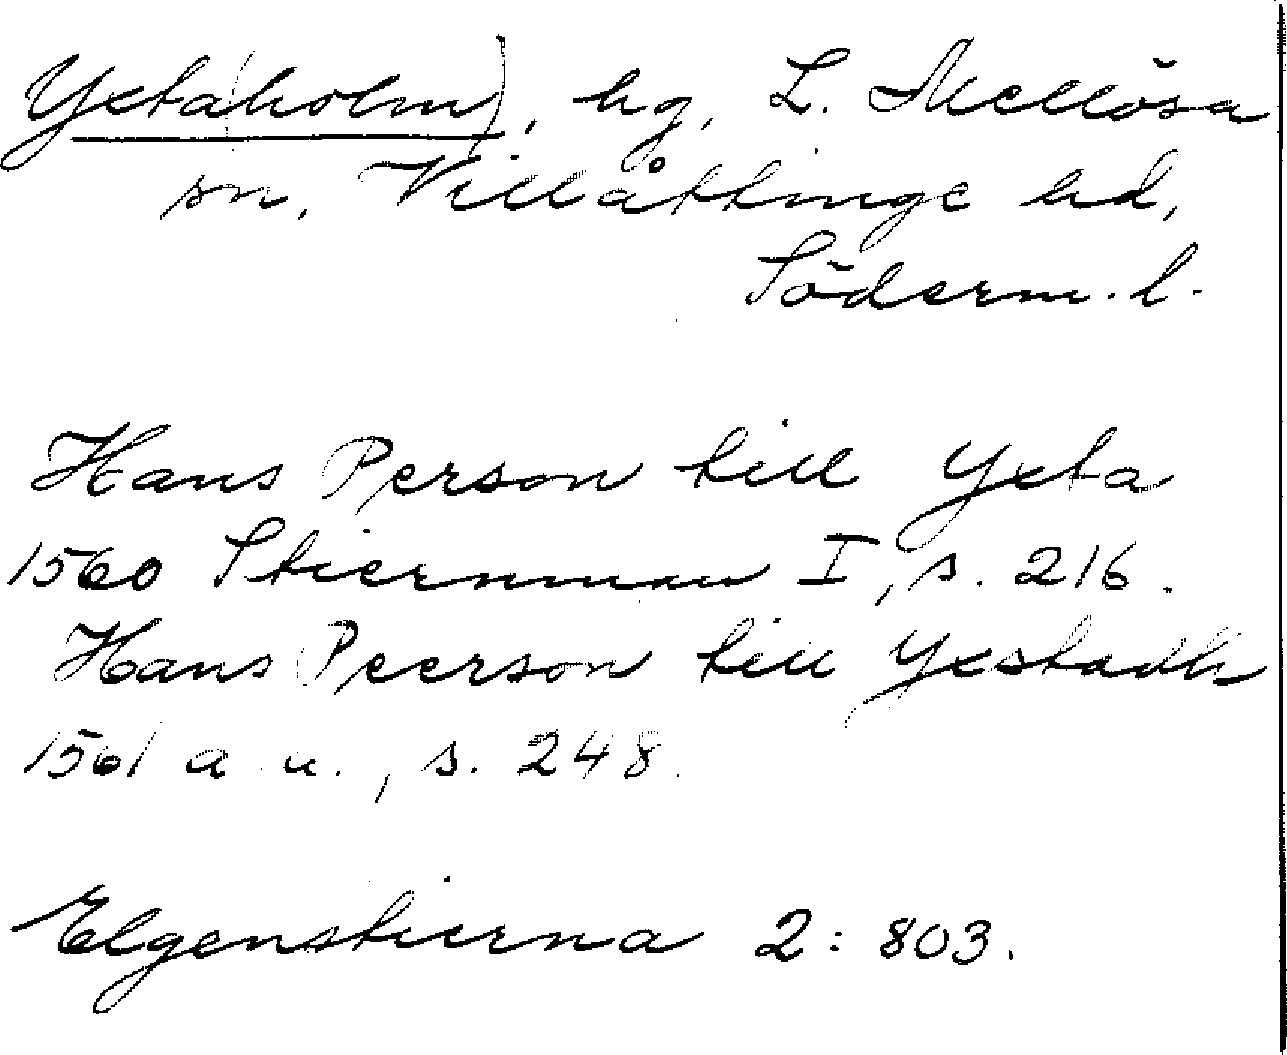 Yxta(holm), hg, L. Mellösa
sn, Villåttinge hd,
Söderm. l.
Hans Person till Yxta
1560 Stiernman I, s. 216.
Hans Peerson till Yxstadh
1561 a. u., s. 248.
Elgenstierna 2: 803.